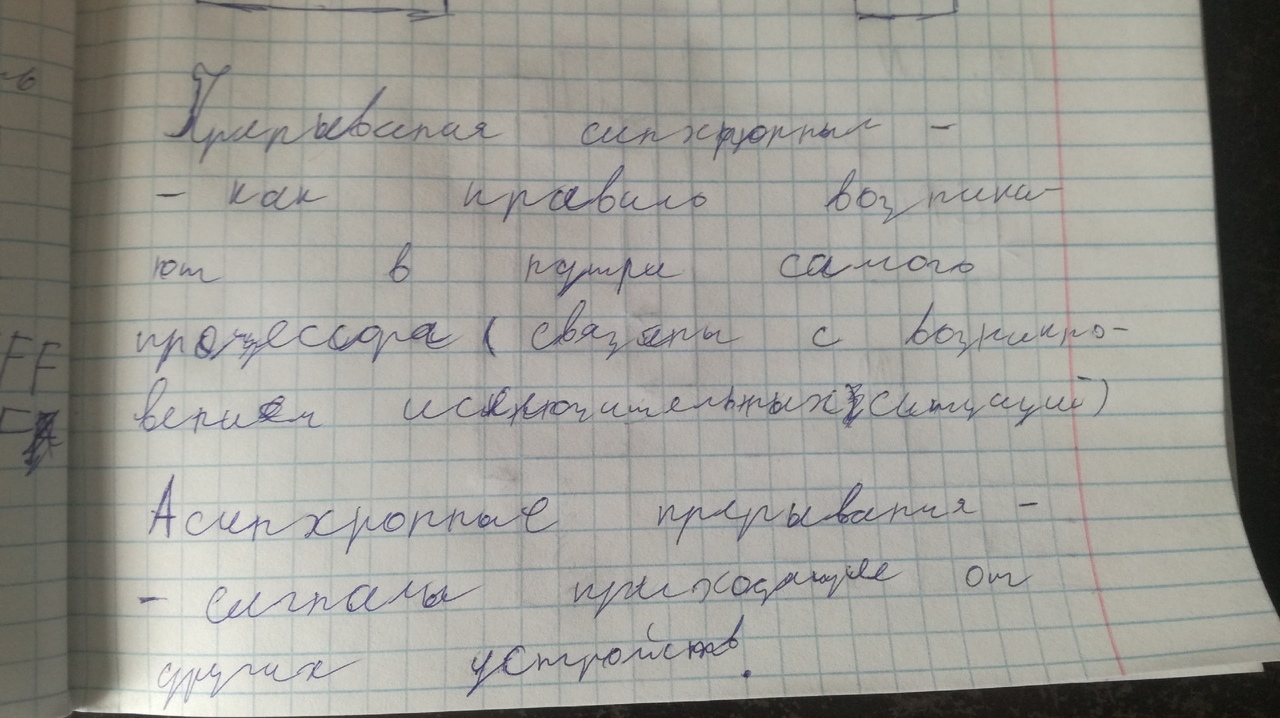 Прерывания синхронные -
- как правило возника-
ют в нутри самого
процессора (связаны с возникно-
вением исключительных ситуаций)
Асинхронные прерывания -
- сигналы приходящие от
других устройств.
FF